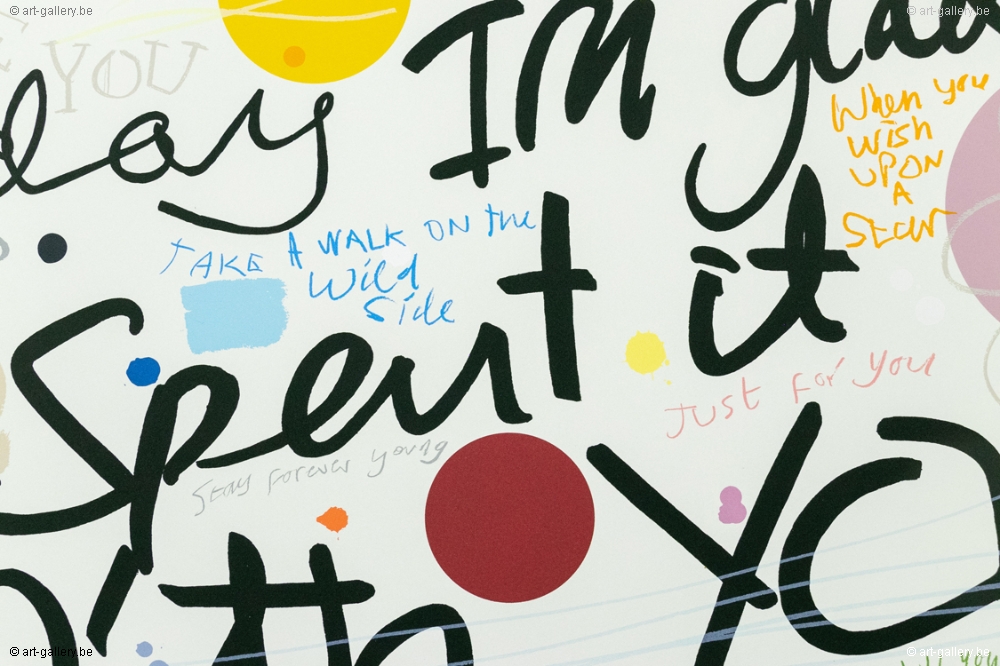 © art-gallery.be
© art-gallery.be
YOU
day I'm glad
When you
wish
UPON
A
Star
TAKE A WALK ON the
Wild
Side
Spent it
Just for you
Stay forever young
with YO
you
© art-gallery.be
© art-gallery.be